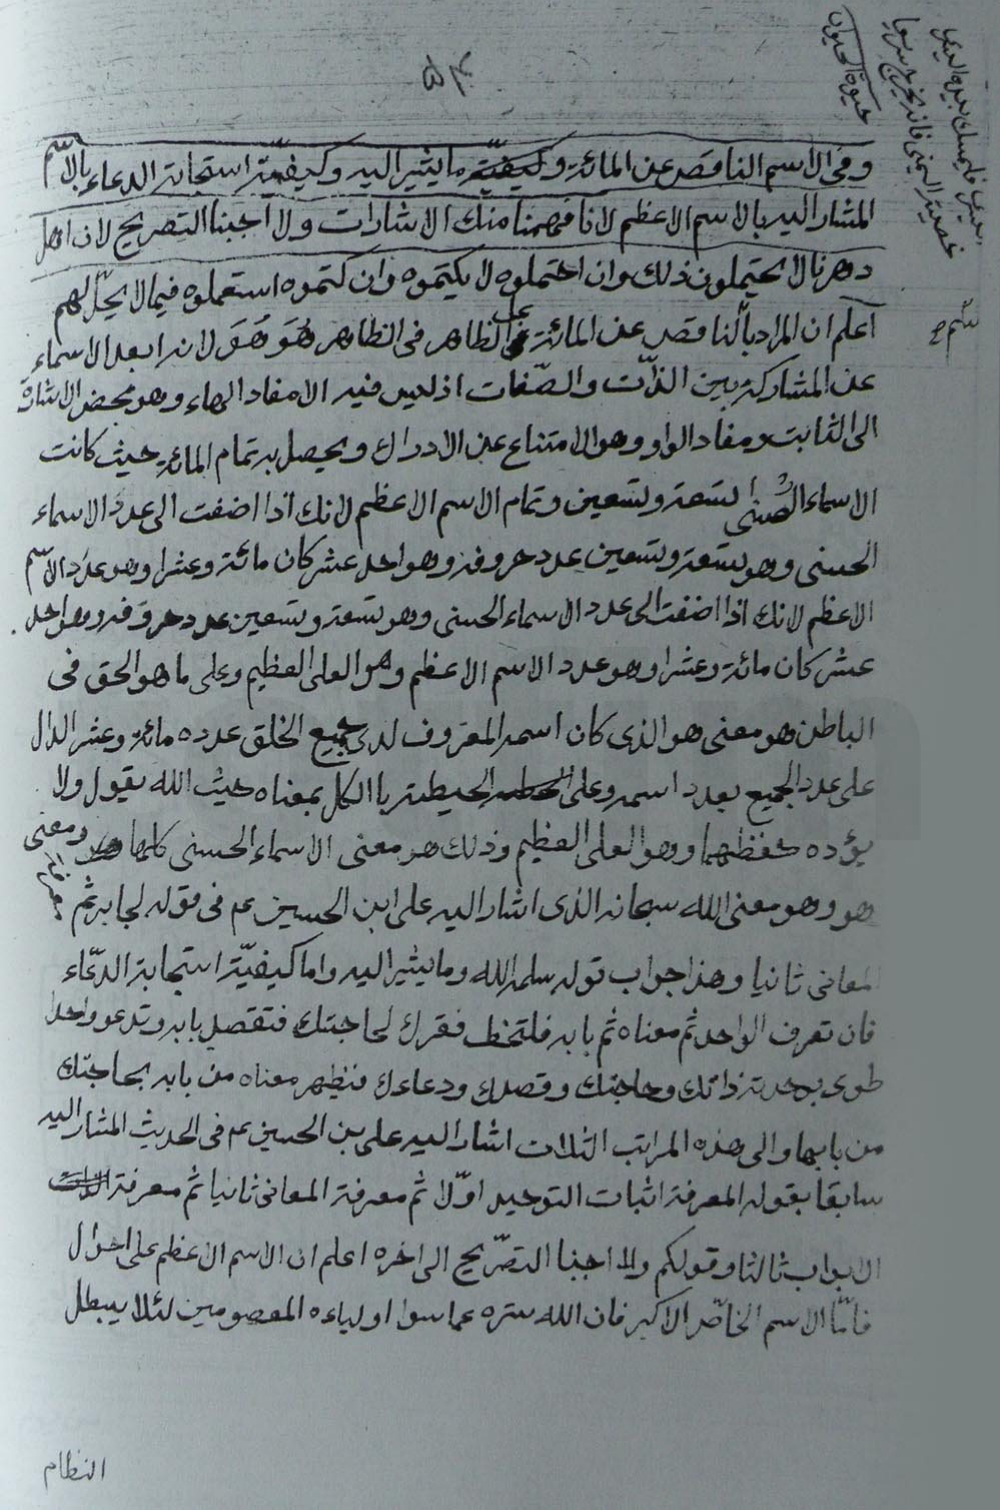 حيوة الحيوان
وفى الاسم الناقص عن المائة وكيفيّة ما يشير اليه وكيفيّة استجابة الدعاء بالاسم
المشار اليه بالاسم الاعظم لانا فهمنا منك الاشارات ولا اجبنا التصريح لان اهل
دهرنا لا يحتملون ذلك وان احتملوه لا يكتموه وان كتموه استعملوه فيما لا يحلّ لهم
اعلم ان المراد بالناقص عن المائة على الظاهر فى الظاهر هُوَ هُوَ لانه ابعد الاسماء
عن المشاركة بين الذّات والصّفات اذ ليس فيه الا مفاد الهاء وهو محض الاشارة
الى الثابت ومفاد الواو وهو الامتناع عن الادراك ويحصل به تمام المائة حيث كانت
الاسماء الحسنى تسعة وتسعين وتمام الاسم الاعظم لانك اذا اضفت الى عدد الاسماء
الحسنى وهو تسعة وتسعين عدد حروفه وهو احد عشر كان مائة وعشرا وهو عدد الاسم
الاعظم لانك اذا اضفت الى عدد الاسماء الحسنى وهو تسعة وتسعين عدد حروفه وهو احد
عشر كان مائة وعشرا وهو عدد الاسم الاعظم وهو العلى العظيم وعلى ما هو الحق فى
الباطن هو معنى هو الذى كان اسمه المعروف لدى جميع الخلق عدده مائة وعشر الدال
على عدد الجميع بعدد اسمه وعلى الحيطة بالكل بمعناه حيث الله يقول ولا
يؤده حفظهما وهو العلى العظيم وذلك هو معنى الاسماء الحسنى كلها ومعنى
هو وهو معنى الله سبحانه الذى اشار اليه على ابن الحسين ع فى قوله لجابر ثم معرفة
المعانى ثانيا وهذا جواب قوله سلمه الله وما يشير اليه واما كيفيّة استجابة الدّعاء
فان تعرف الواحد ثم معناه ثم بابه فلتحظ فقرك لحاجتك فتقصد بابه وتدعو واحدا
طوى بوحدته ذاتك وحاجتك وقصدك ودعاءك فتظهر معناه من بابه بحاجتك
من بابها والى هذه المراتب الثلاث اشار اليه على بن الحسين ع فى الحديث المشار اليه
سابقا بقوله المعرفة اثبات التوحيد اوّلا ثم معرفة المعانى ثانيا ثم معرفة
الابواب ثالثا وقولكم ولا اجبنا التصريح الى اخره اعلم ان الاسم الاعظم على احوال
فامّا الاسم الخاصّ الاكبر فان الله ستره عما سوا اولياءه المعصومين لئلا يبطل
النظام